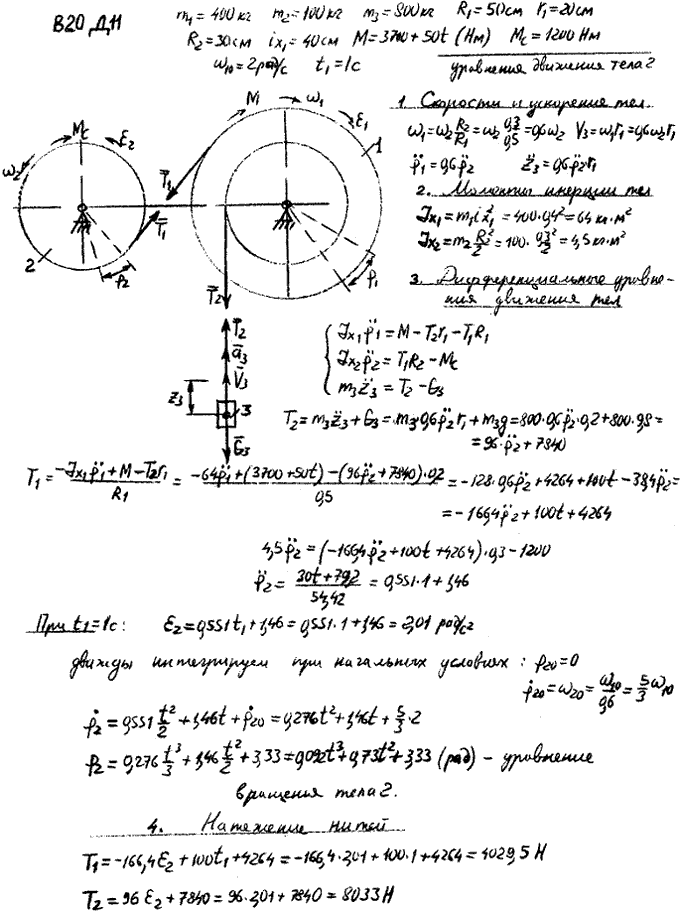 В20 Д11
m₁ = 400 кг m₂ = 100 кг m₃ = 800 кг R₁ = 50 см r₁ = 20 см
R₂ = 30 см ix₁ = 40 см M = 3700 + 50t (Нм) Mc = 1200 Нм
ω₁₀ = 2 рад/с t₁ = 1с уравнения движения тела 2
1. Скорости и ускорение тел
ω₁ = ω₂ R₂/R₁ = ω₂ 0,3/0,5 = 0,6ω₂ V₃ = ω₁r₁ = 0,6ω₂r₁
φ̈₁ = 0,6φ̈₂ z̈₃ = 0,6φ̈₂r₁
2. Моменты инерции тел
Jx₁ = m₁ix₁² = 400·0,4² = 64 кг·м²
Jx₂ = m₂ R₂²/2 = 100·0,3²/2 = 4,5 кг·м²
3. Дифференциальные уравне-
ния движения тел
Mc ε₂ ω₂ T̄₁ T̄₁ 2 φ₂
M ω₁ ε₁ 1 φ₁ T̄₂
T̄₂
ā₃
V̄₃
z₃ 3
Ḡ₃
Jx₁φ̈₁ = M − T₂r₁ − T₁R₁
Jx₂φ̈₂ = T₁R₂ − Mc
m₃z̈₃ = T₂ − G₃
T₂ = m₃z̈₃ + G₃ = m₃·0,6φ̈₂r₁ + m₃g = 800·0,6φ̈₂·0,2 + 800·9,8 =
= 96·φ̈₂ + 7840
T₁ = (−Jx₁φ̈₁ + M − T₂r₁)/R₁ = (−64φ̈₁ + (3700 + 50t) − (96φ̈₂ + 7840)·0,2)/0,5 = −128·0,6φ̈₂ + 4264 + 100t − 38,4φ̈₂ =
= −166,4φ̈₂ + 100t + 4264
4,5φ̈₂ = (−166,4φ̈₂ + 100t + 4264)·0,3 − 1200
φ̈₂ = (30t + 79,2)/54,42 = 0,551·1 + 1,46
При t₁ = 1с: ε₂ = 0,551t₁ + 1,46 = 0,551·1 + 1,46 = 2,01 рад/с²
дважды интегрируем при начальных условиях: φ₂₀ = 0
φ̇₂₀ = ω₂₀ = ω₁₀/0,6 = 5/3 ω₁₀
φ̇₂ = 0,551 t²/2 + 1,46t + φ̇₂₀ = 0,276t² + 1,46t + 5/3·2
φ₂ = 0,276 t³/3 + 1,46 t²/2 + 3,33 = 0,092t³ + 0,73t² + 3,33 (рад) – уравнение
вращенья тела 2.
4. Натяжение нитей
T₁ = −166,4ε₂ + 100t₁ + 4264 = −166,4·2,01 + 100·1 + 4264 = 4029,5 Н
T₂ = 96ε₂ + 7840 = 96·2,01 + 7840 = 8033 Н